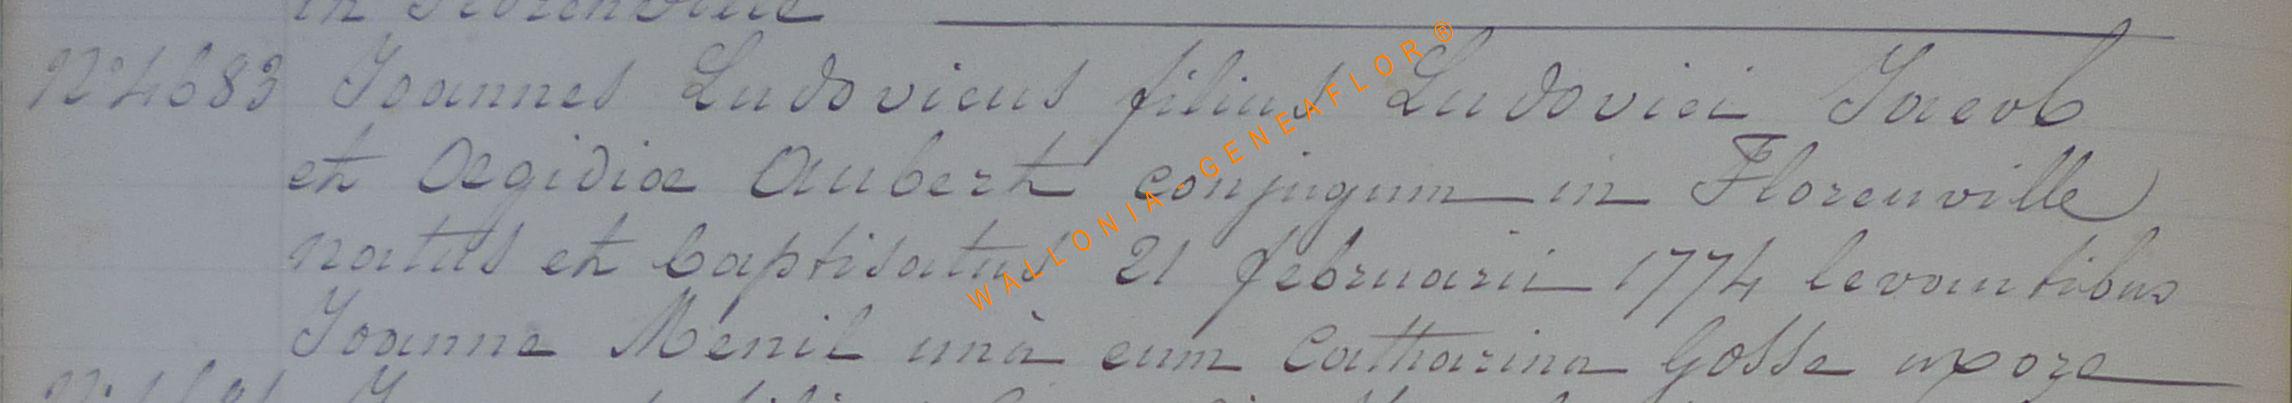 in Florenville
N° 4683 Joannes Ludovicus filius Ludovici Jacob
et Aegidiae Aubert conjugum in Florenville
natus et baptisatus 21 februarii 1774 levantibus
Joanne Menil unà cum Catharina Gosse uxore
WALLONIA - GENEAFLOR ®